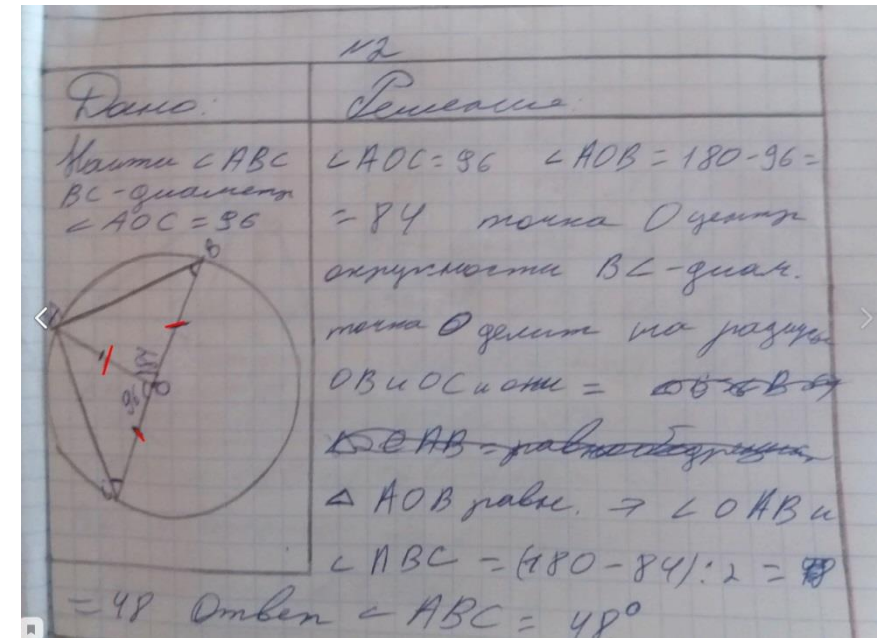 N2
Дано: Решение:
Найти ∠ABC
BC-диаметр
∠AOC = 96
B
84
96
O
C
∠AOC = 96 ∠AOB = 180-96=
= 84 точка O центр
окружности BC-диам.
точка O делит на радиусы
OB и OC и они =
△ AOB равн. ⇒ ∠OAB и
∠ABC = (180 - 84) : 2 =
= 48 Ответ ∠ABC = 48°